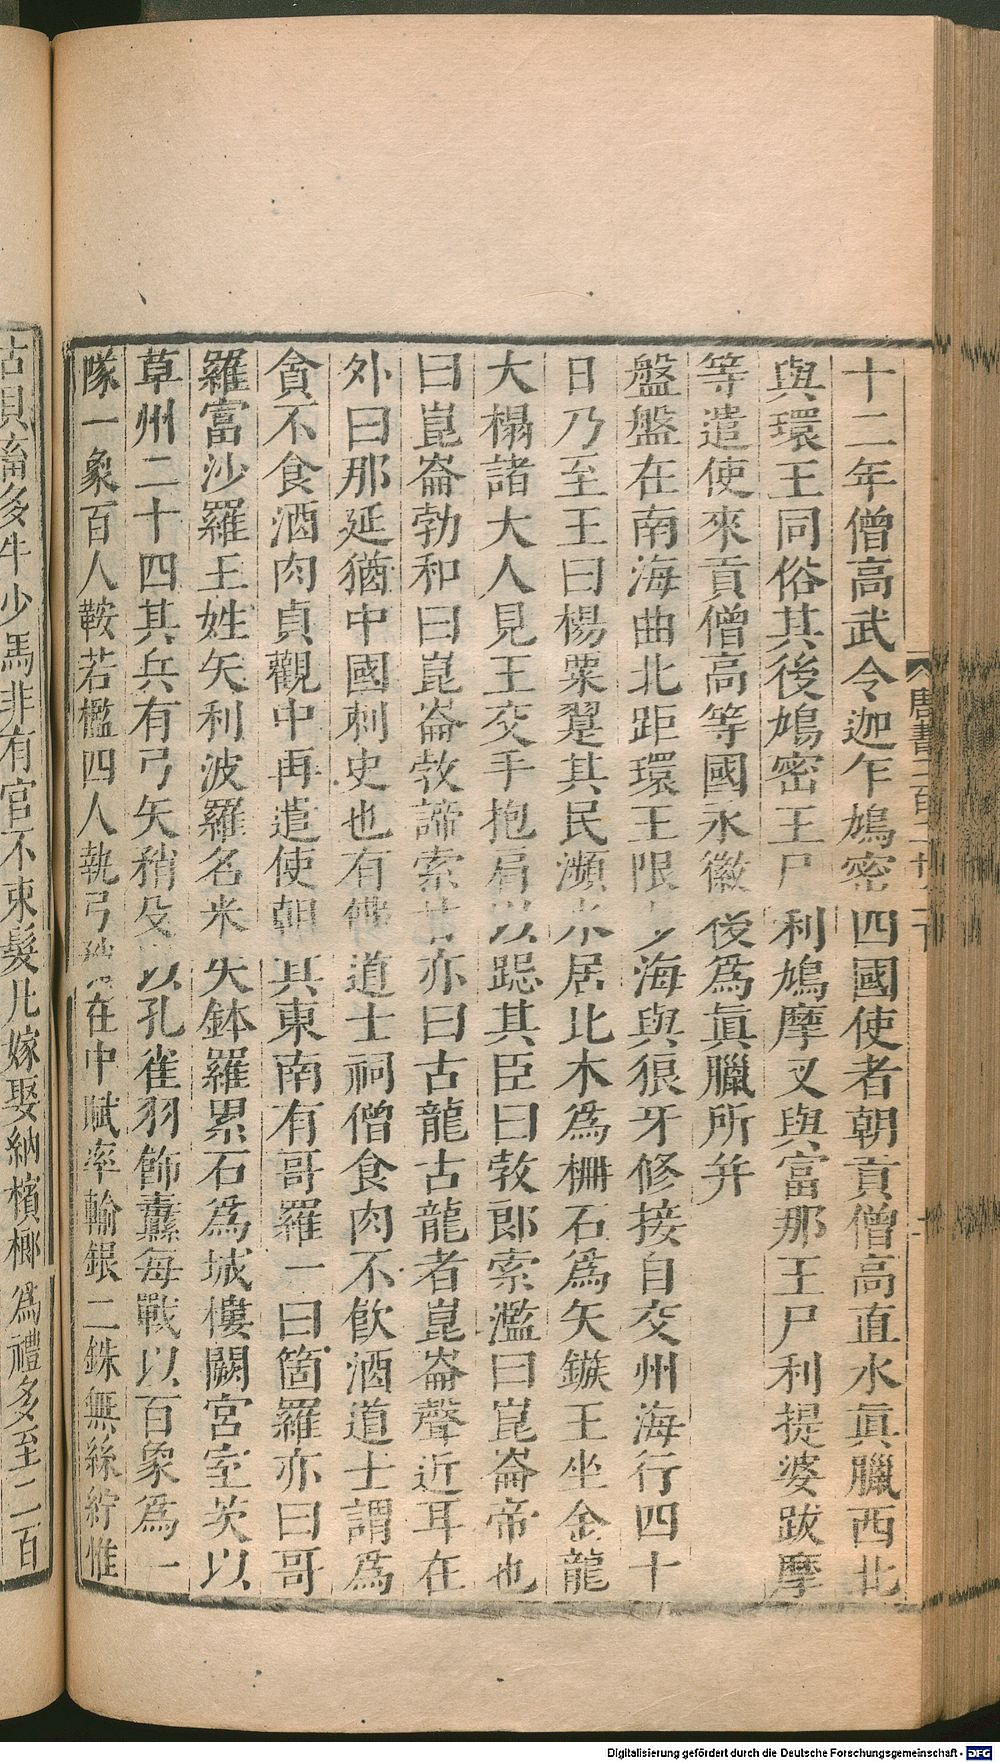 十二年僧高武令迦乍鳩密四國使者朝貢僧高直水眞臘西北
與環王同俗其後鳩密王尸利鳩摩又與富那王尸利提婆跋摩
等遣使來貢僧高等國永徽後爲眞臘所并
盤盤在南海曲北距環王限少海與狼牙修接自交州海行四十
日乃至王曰楊粟翨其民瀕水居比木爲柵石爲矢鏃王坐金龍
大榻諸大人見王交手抱肩以跽其臣曰敦郎索濫曰崑崙帝也
曰崑崙勃和曰崑崙敦諦索甘亦曰古龍古龍者崑崙聲近耳在
外曰那延猶中國刺史也有佛道士祠僧食肉不飲酒道士謂爲
貪不食酒肉貞觀中再遣使朝其東南有哥羅一曰箇羅亦曰哥
羅富沙羅王姓矢利波羅名米失鉢羅累石爲城樓闕宮室茨以
草州二十四其兵有弓矢矟殳以孔雀羽飾纛每戰以百象爲一
隊一象百人鞍若檻四人執弓在中賦率輸銀二銖無絲紵惟
古貝畜多牛少馬非有官不束髮凡嫁娶納檳榔爲禮多至二百
唐書二百二十
Digitalisierung gefördert durch die Deutsche Forschungsgemeinschaft - DFG